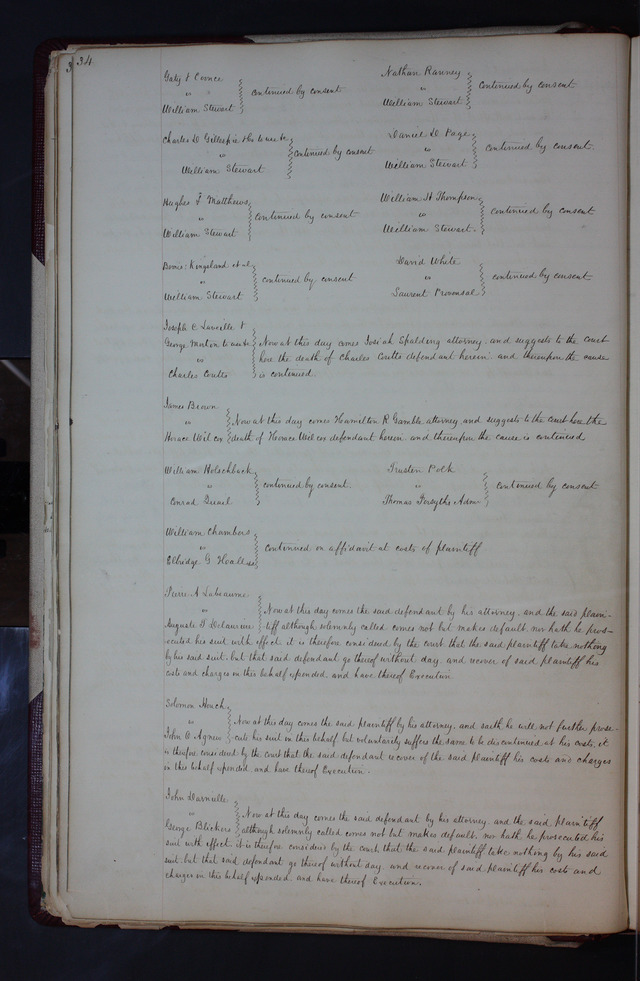 34.
Gaty & Coonce
vs
William Stewart
continued by consent
Nathan Ranney
vs
William Stewart
continued by consent
Charles D Gillespie to use
vs
William Stewart
continued by consent
Daniel D. Page
vs
William Stewart
continued by consent.
Hughes F Matthews
vs
William Stewart
continued by consent
William H Thompson
vs
William Stewart.
continued by consent
Kingsland et al
vs
William Stewart
continued by consent
David White
vs
Laurent Provensal
continued by consent
Joseph C Laveille &
George Morton to use &c
vs
Charles Coutts
Now at this day comes Josiah Spalding attorney, and suggests to the court
here the death of Charles Coutts defendant herein, and thereupon the cause
is continued.
James Brown
vs
Horace Wilcox
Now at this day comes Hamilton R Gamble attorney, and suggests to the court here the
death of Horace Wilcox defendant herein and thereupon the cause is continued
William Holschback
vs
Conrad
continued by consent.
Trusten Polk
vs
Thomas Forsythe Admr
continued by consent
William Chambers
vs
Elbridge G
continued on affidavit at costs of plaintiff
Pierre A Labeaume
vs
Auguste T Delauriere
Now at this day comes the said defendant by his attorney, and the said plain-
tiff although solemnly called comes not but makes default, nor hath he pros-
ecuted his suit with effect, it is therefore considered by the court that the said plaintiff take nothing
by his said suit, but that said defendant go thereof without day, and recover of said plaintiff his
costs and charges in this behalf expended, and have thereof Execution.
Solomon Houck
vs
John A. Agnew
Now at this day comes the said plaintiff by his attorney, and saith he will not further prose-
cute his suit in this behalf but voluntarily suffers the same to be discontinued at his costs, it
is therefore considered by the court that the said defendant recover of the said Plaintiff his costs and charges
in this behalf expended, and have thereof Execution.
John Darnielle
vs
George Blickers
Now at this day comes the said defendant by his attorney, and the said plaintiff
although solemnly called comes not but makes default, nor hath he prosecuted his
suit with effect, it is therefore considered by the court, that the said plaintiff take nothing by his said
suit, but that said defendant go thereof without day, and recover of said plaintiff his costs and
charges in this behalf expended and have thereof Execution.